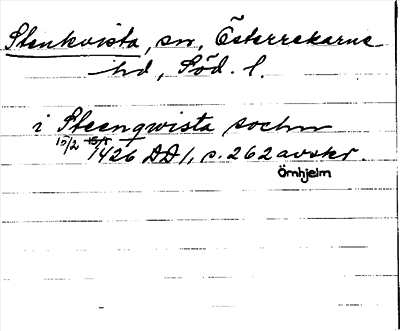 Stenkvista, sn, Österrekarne
hd, Söd. l.
i Steenqwista sochn
15/2 1426 DD1, s. 262 avskr.
Örnhjelm